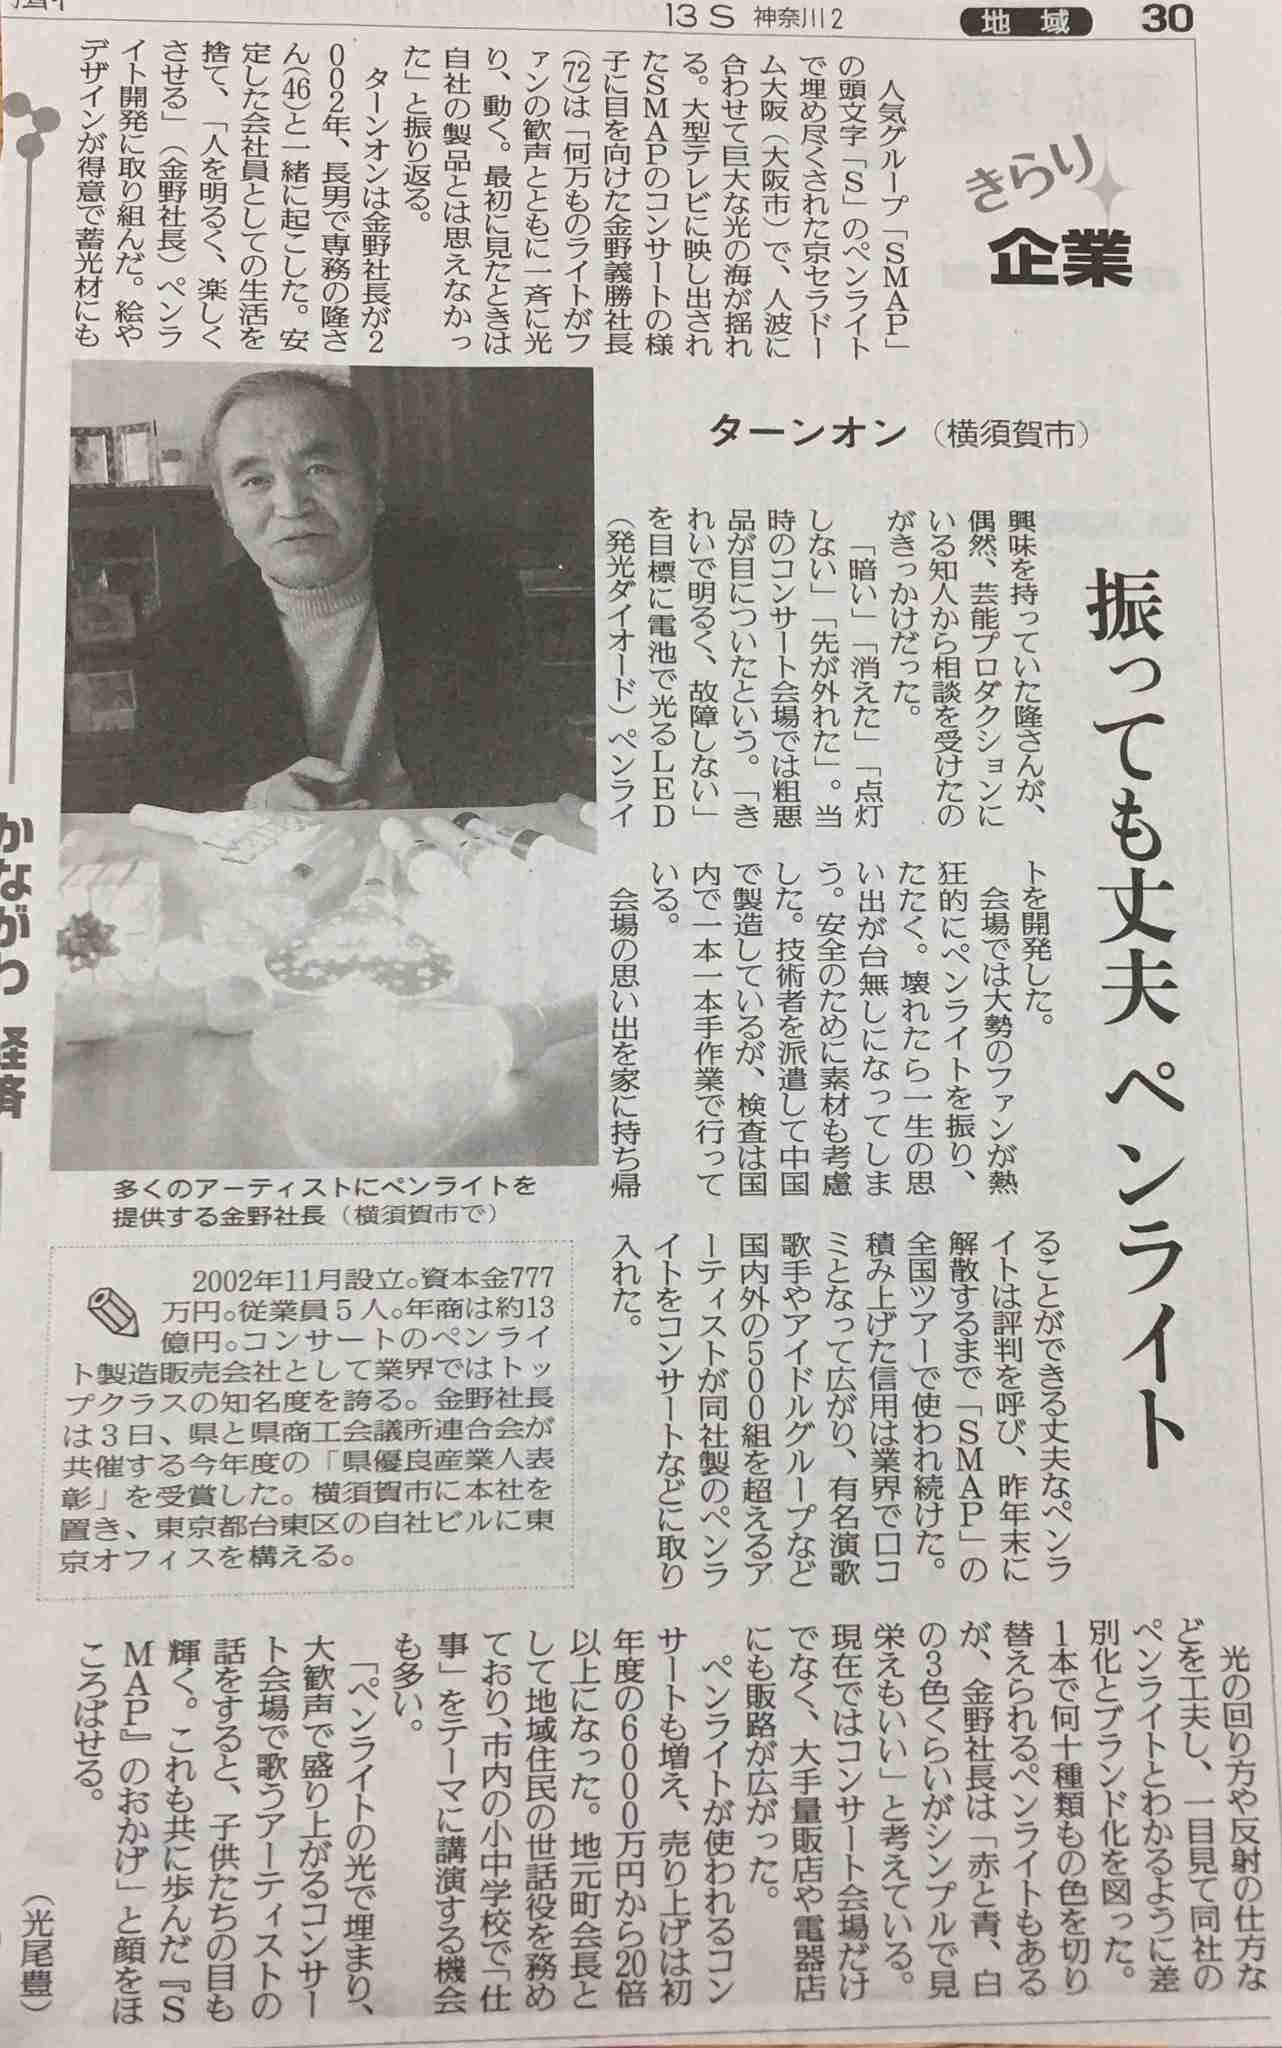 13S 神奈川2
地域
30
きらり
企業
ターンオン（横須賀市）
振っても丈夫 ペンライト
人気グループ「SMAP」
の頭文字「S」のペンライト
で埋め尽くされた京セラドー
ム大阪（大阪市）で、人波に
合わせて巨大な光の海が揺れ
る。大型テレビに映し出され
たSMAPのコンサートの様
子に目を向けた金野義勝社長
(72)は「何万ものライトがフ
ァンの歓声とともに一斉に光
り、動く。最初に見たときは
自社の製品とは思えなかっ
た」と振り返る。
ターンオンは金野社長が2
002年、長男で専務の隆さ
ん(46)と一緒に起こした。安
定した会社員としての生活を
捨て、「人を明るく、楽しく
させる」（金野社長）ペンラ
イト開発に取り組んだ。絵や
デザインが得意で蓄光材にも
興味を持っていた隆さんが、
偶然、芸能プロダクションに
いる知人から相談を受けたの
がきっかけだった。
「暗い」「消えた」「点灯
しない」「先が外れた」。当
時のコンサート会場では粗悪
品が目についたという。「き
れいで明るく、故障しない」
を目標に電池で光るLED
（発光ダイオード）ペンライ
トを開発した。
会場では大勢のファンが熱
狂的にペンライトを振り、
たたく。壊れたら一生の思
い出が台無しになってしま
う。安全のために素材も考慮
した。技術者を派遣して中国
で製造しているが、検査は国
内で一本一本手作業で行って
いる。
会場の思い出を家に持ち帰
ることができる丈夫なペンラ
イトは評判を呼び、昨年末に
解散するまで「SMAP」の
全国ツアーで使われ続けた。
積み上げた信用は業界で口コ
ミとなって広がり、有名演歌
歌手やアイドルグループなど
国内外の500組を超えるア
ーティストが同社製のペンラ
イトをコンサートなどに取り
入れた。
光の回り方や反射の仕方な
どを工夫し、一目見て同社の
ペンライトとわかるように差
別化とブランド化を図った。
1本で何十種類もの色を切り
替えられるペンライトもある
が、金野社長は「赤と青、白
の3色くらいがシンプルで見
栄えもいい」と考えている。
現在ではコンサート会場だけ
でなく、大手量販店や電器店
にも販路が広がった。
ペンライトが使われるコン
サートも増え、売り上げは初
年度の6000万円から20倍
以上になった。地元町会長と
して地域住民の世話役を務め
ており、市内の小中学校で「仕
事」をテーマに講演する機会
も多い。
「ペンライトの光で埋まり、
大歓声で盛り上がるコンサー
ト会場で歌うアーティストの
話をすると、子供たちの目も
輝く。これも共に歩んだ『S
MAP』のおかげ」と顔をほ
ころばせる。
（光尾豊）
多くのアーティストにペンライトを
提供する金野社長（横須賀市で）
2002年11月設立。資本金777
万円。従業員5人。年商は約13
億円。コンサートのペンライ
ト製造販売会社として業界ではトッ
プクラスの知名度を誇る。金野社長
は3日、県と県商工会議所連合会が
共催する今年度の「県優良産業人表
彰」を受賞した。横須賀市に本社を
置き、東京都台東区の自社ビルに東
京オフィスを構える。
かながわ 経済